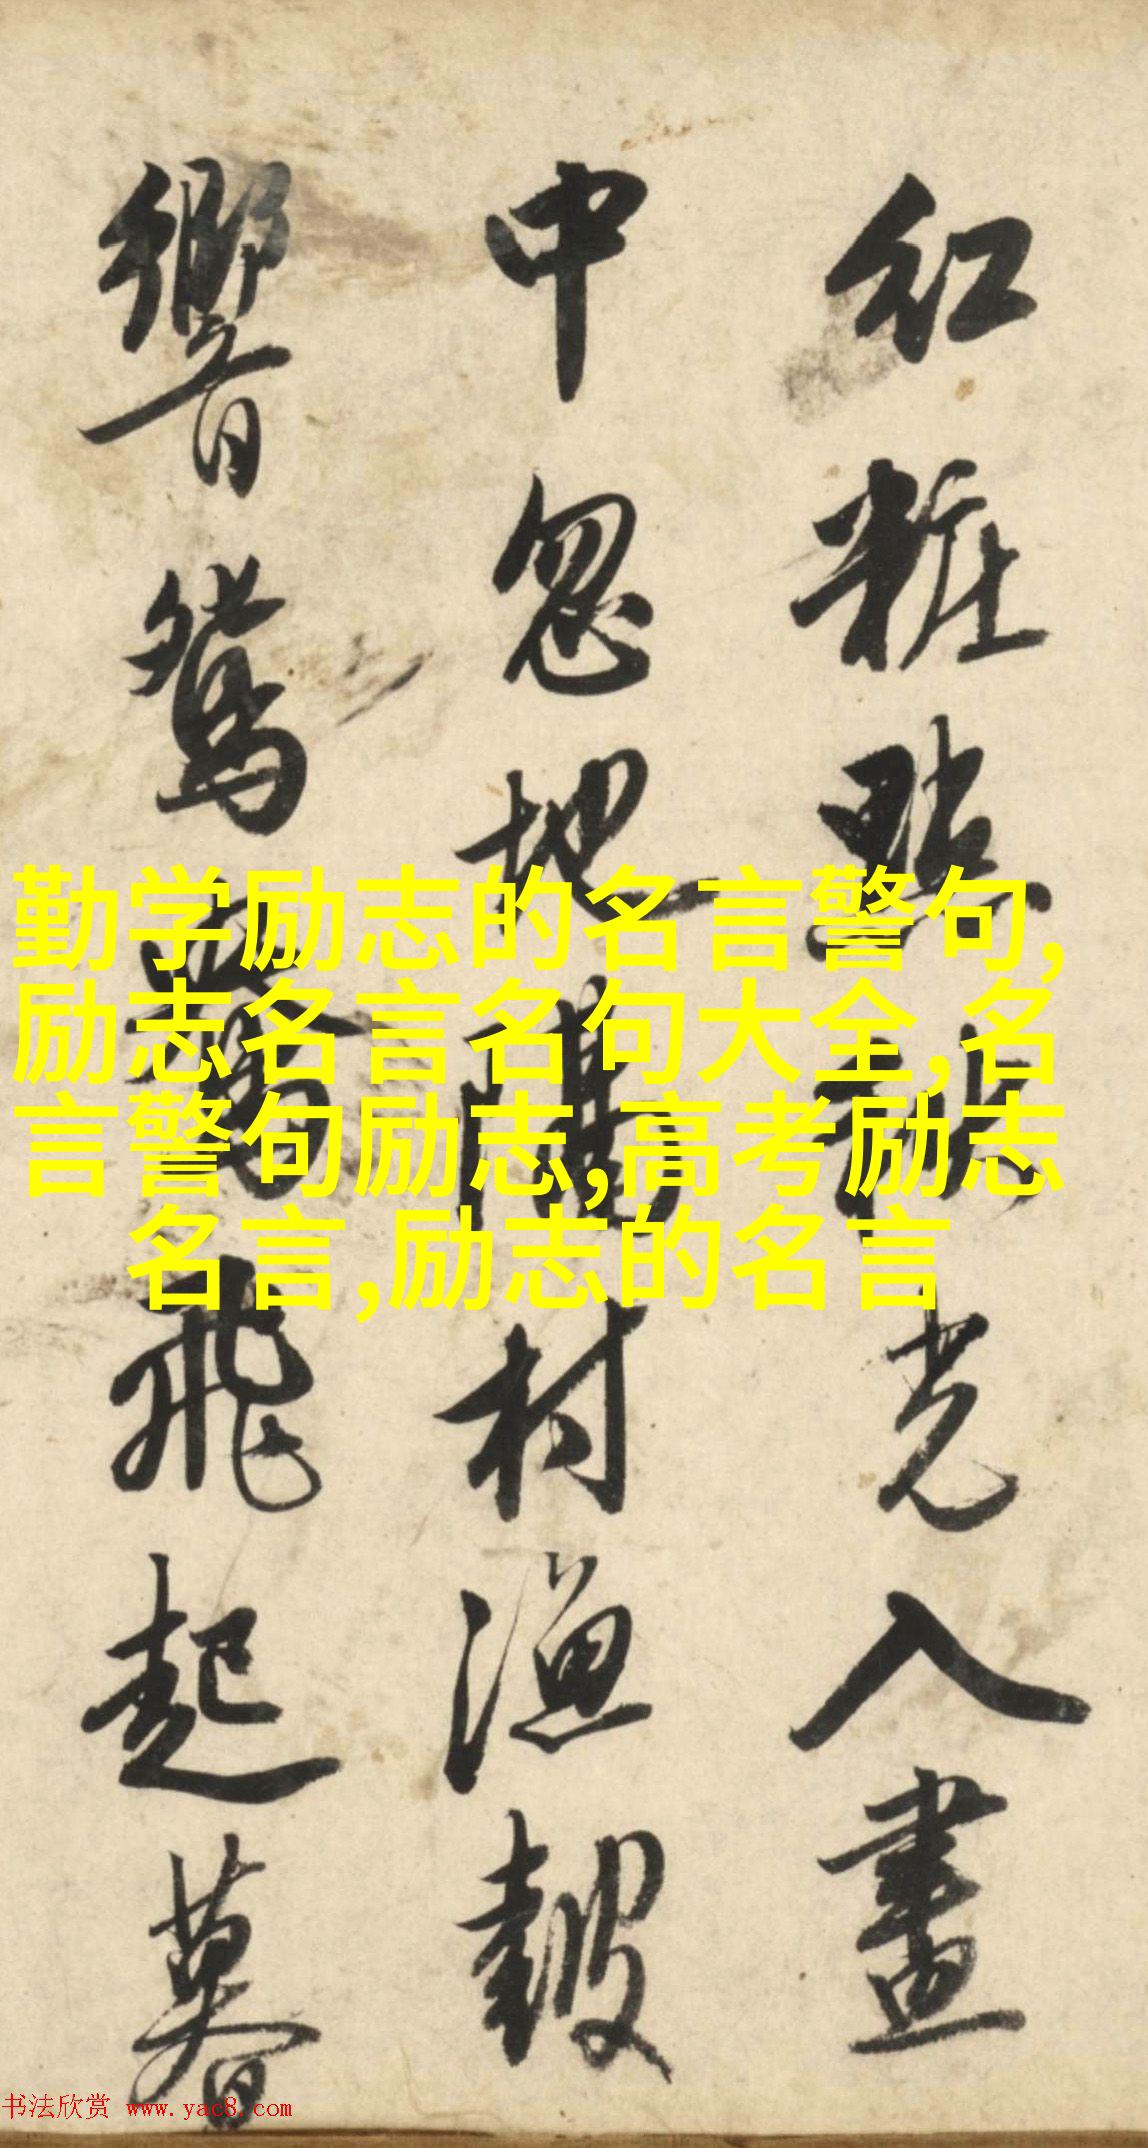 紅粧點光入畫
中忽地隔村漁皷
響鴛鴦飛起暮
勤学励志的名言警句,
励志名言名句大全,名
言警句励志,高考励志
名言,励志的名言
书法欣赏 www.yac8.com